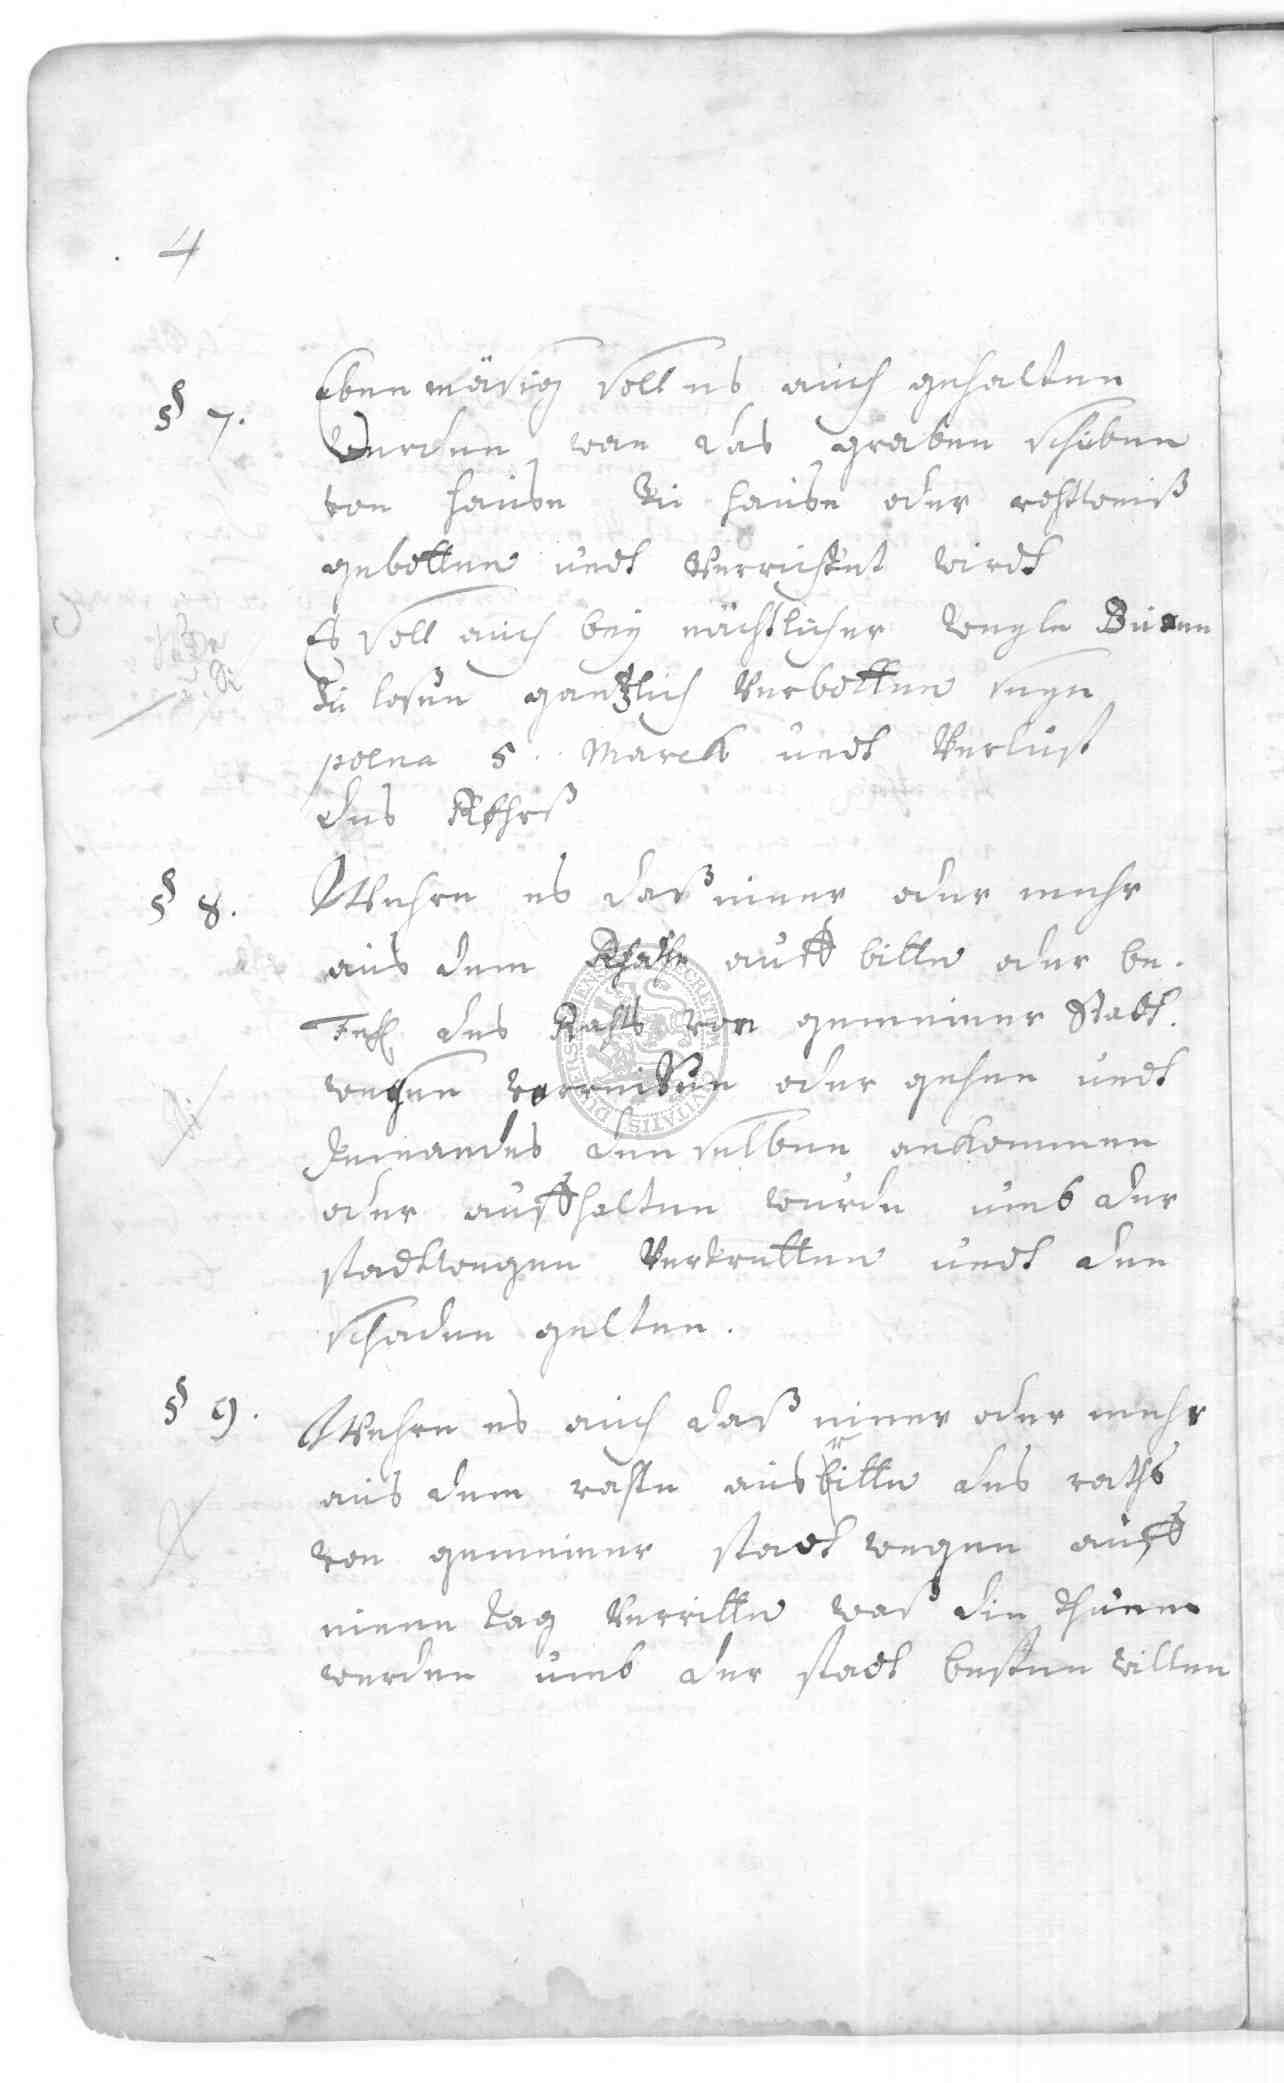 4
§ 7.
Eben mäsig soll es auch gehalten
Werden wan das graben schüben
von hause zu hause oder rohtweiß
gebotten undt Verrichtet wirdt
Es soll auch bey nächtlicher weyle
zu losen gantzlich Verbotten seyn
poena 5 Marck undt Verlust
des
§ 8.
Wehre es daß einer oder mehr
aus dem Rhathe auff bitte oder be-
fehl des Rahts von gemeiner Stadt
wegen verreisen oder gehen undt
Jemandes den selben ankommen
oder auffhalten wurde umb der
stadtwegen Vertretten undt den
schaden gelten.
§ 9.
Wehre es auch daß einer oder mehr
aus dem rahte aus bitte des raths
von gemeiner stadt wegen auff
einen tag Verritte waß die thuen
werden umb der stadt besten willen